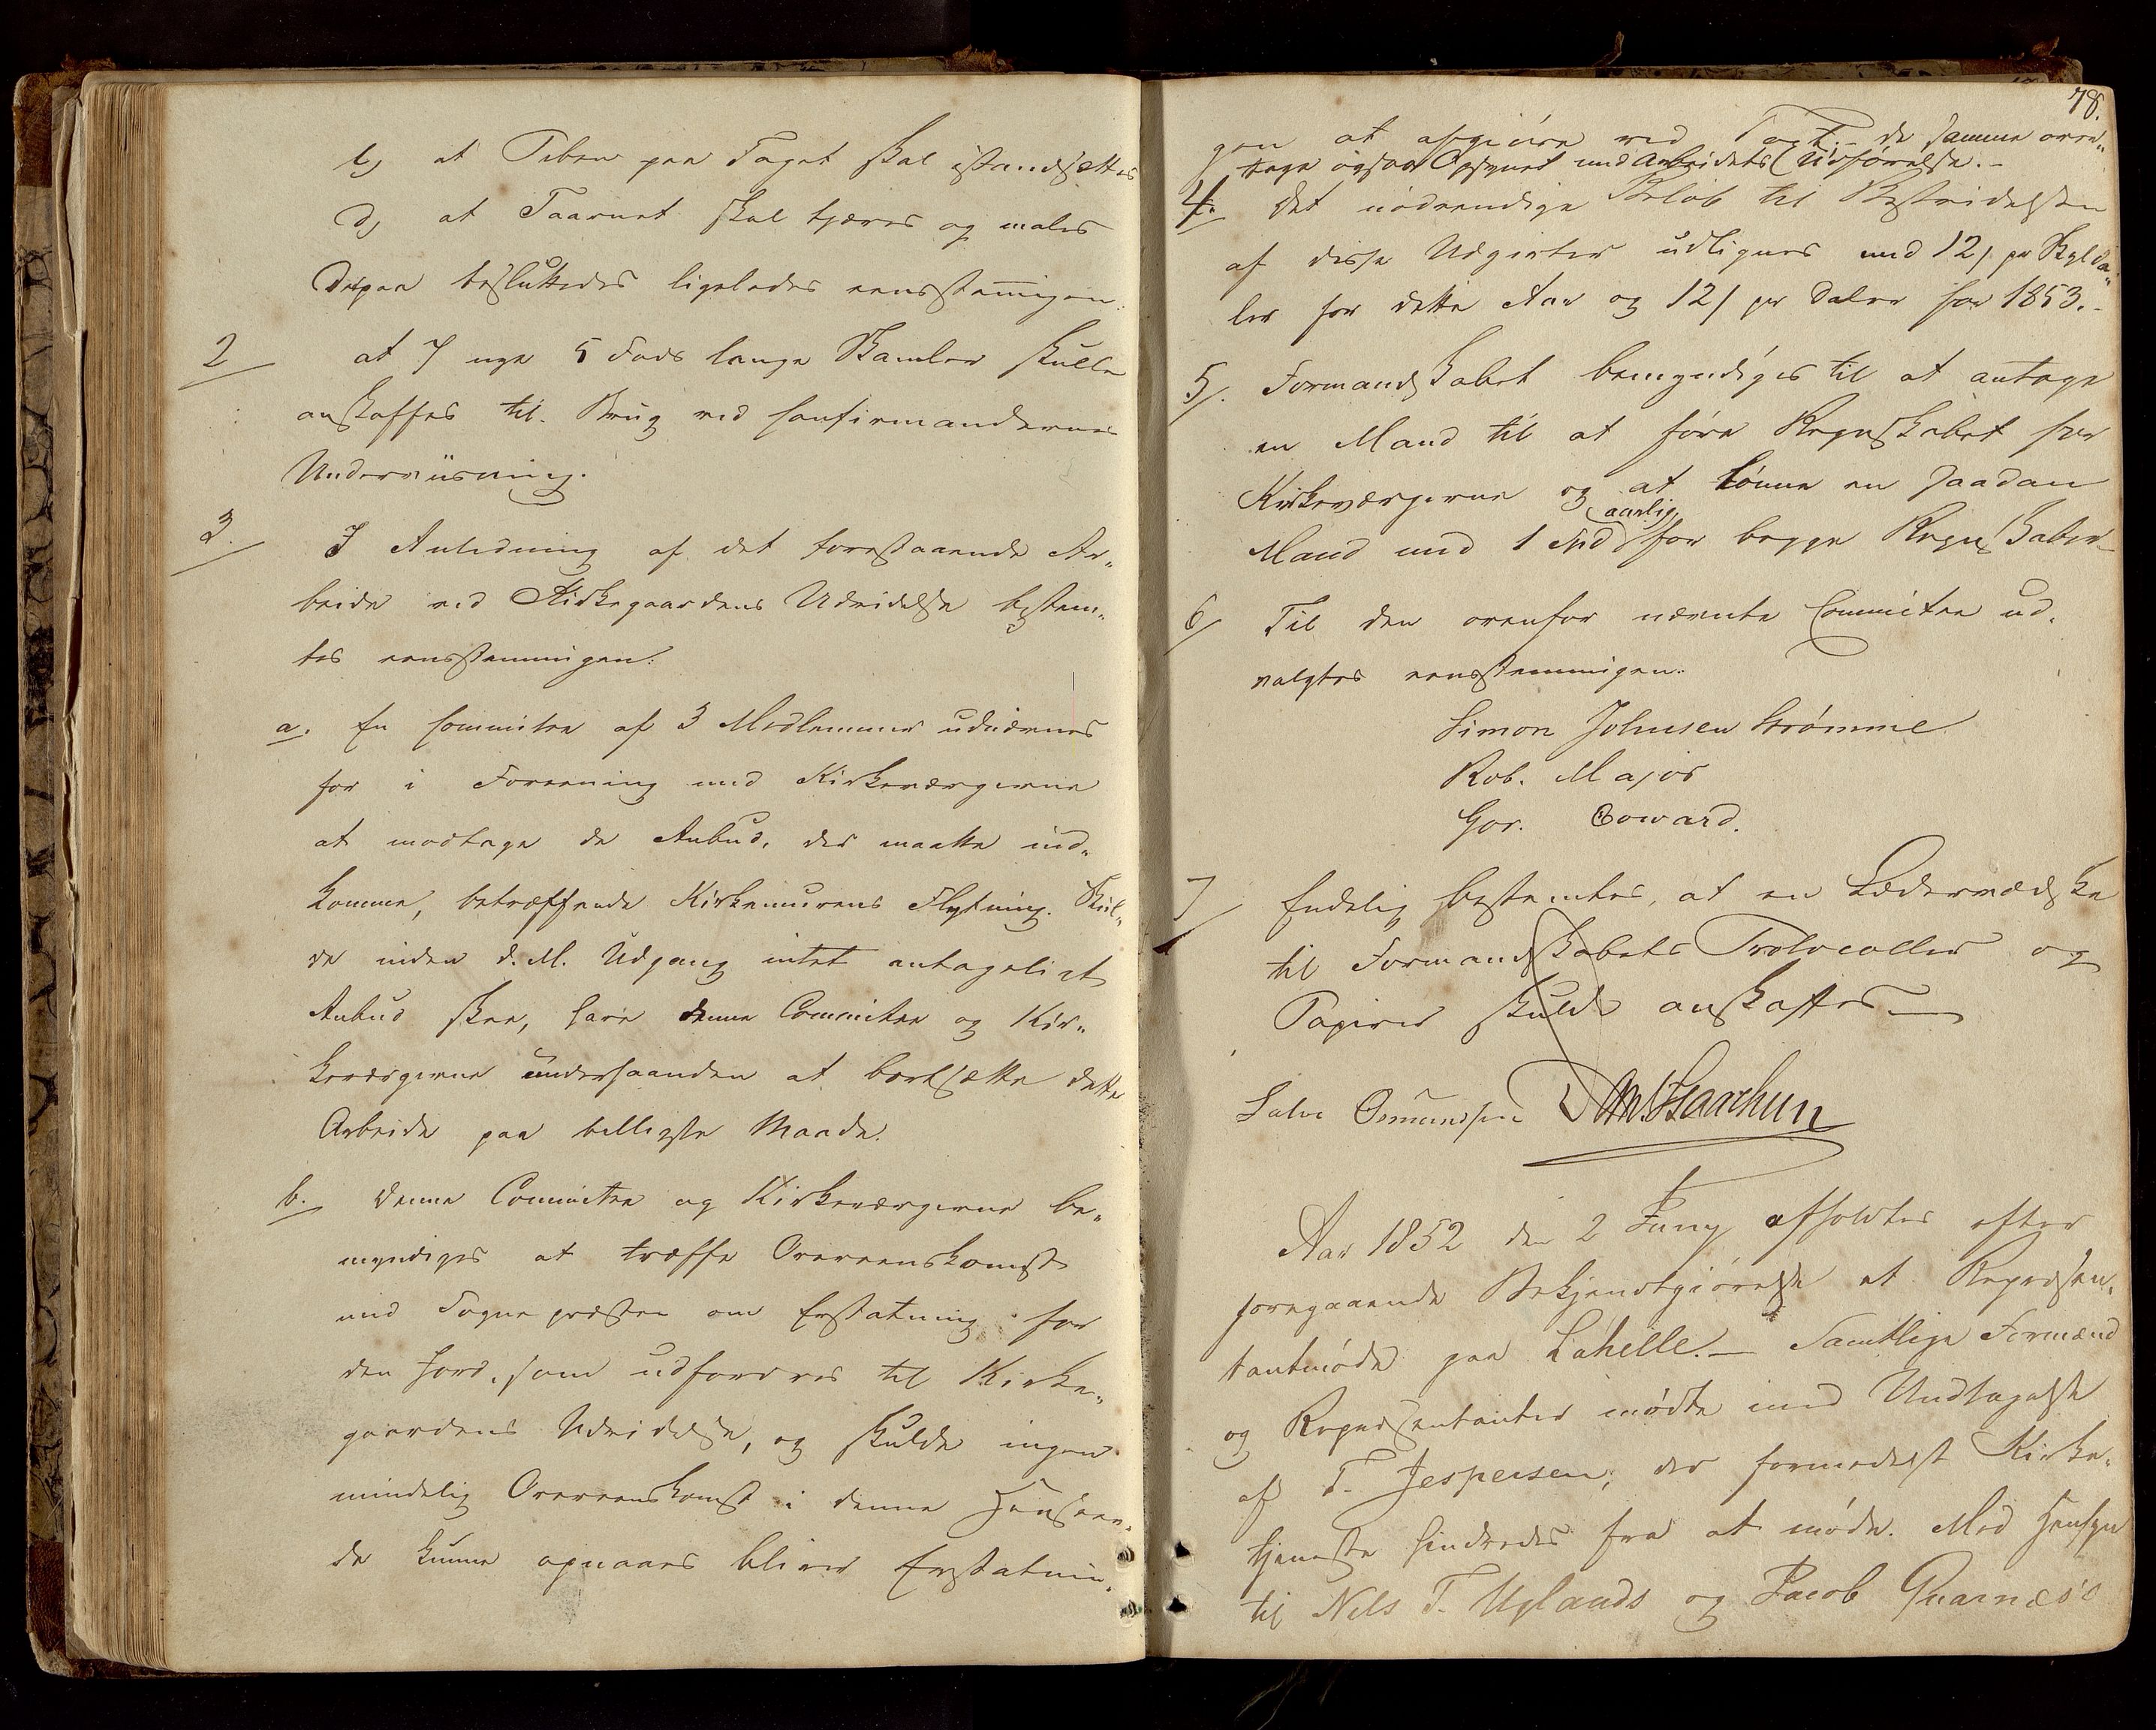 c) at Piben paa Taget skal istandsættes
d) at Taarnet skal tjæres og males
Derpaa besluttedes ligeledes eensstemmigen:
2 at 7 nye 5 Fods lange Skamler skulle
anskaffes til Brug ved Confirmandernes
Underviisning.
3. I Anledning af det forestaaende Ar„
beide ved Kirkegaardens Udvidelse bestem„
tes eensstemmigen:
a. En Committee af 3 Medlemmer udnævnes
for i Foreening med Kirkeværgerne
at modtage de Anbud, der maatte ind„
komme, betræffende Kirkemurens Flytning. Skul„
de inden d. M. Udgang intet antageligt
Anbud skee, have denne Committee og Kir„
keværgerne underhaanden at bortsætte dette
Arbeide paa billigste Maade.
b. Denne Committee og Kirkeværgerne be„
myndiges at træffe Overeenskomst
med Sognepræsten om Erstatning for
den Jord, som udfordres til Kirke„
gaardens Udvidelse, og skulde ingen
mindelig Overeenskomst i denne Henseen„
de kunne opnaaes bliver Erstatnin„
78.
gen at afgjøre ved Taxt. – De samme over„
tage ogsaa Opsynet med Arbeidets Udførelse. –
4. Det nødvendige Beløb til Bestridelsen
af disse Udgivter udlignes med 12 s pr Skylda„
ler for dette Aar og 12 s pr Daler for 1853. –
5. Formandskabet bemyndiges til at antage
en Mand til at føre Regnskabet for
Kirkeværgerne og at lønne en saadan
aarlig
Mand med 1 Spd for begge Regnskaber –
6 Til den ovenfor nævnte Committee ud„
valgtes eensstemmigen:
Simon Johnsen Strømme
Rob. Major
Gov. Coward.
7 Endelig bestemtes, at en Lædervædske
til Formandskabets Protocoller og
Papirer skulde anskaffes –
Salve Osmundsen D M Isaachsen
Aar 1852 den 2 Juny afholdtes efter
foregaaende Bekjendtgjørelse et Repræsen„
tantmøde paa Lahelle. – Samtlige Formænd
og Repræsentanter mødte med Undtagelse
af T. Jespersen, der formedelst Kirke„
tjeneste hindredes fra at møde. Med Hensyn
til Nils T. Uglands og Jacob Qvarnæs's